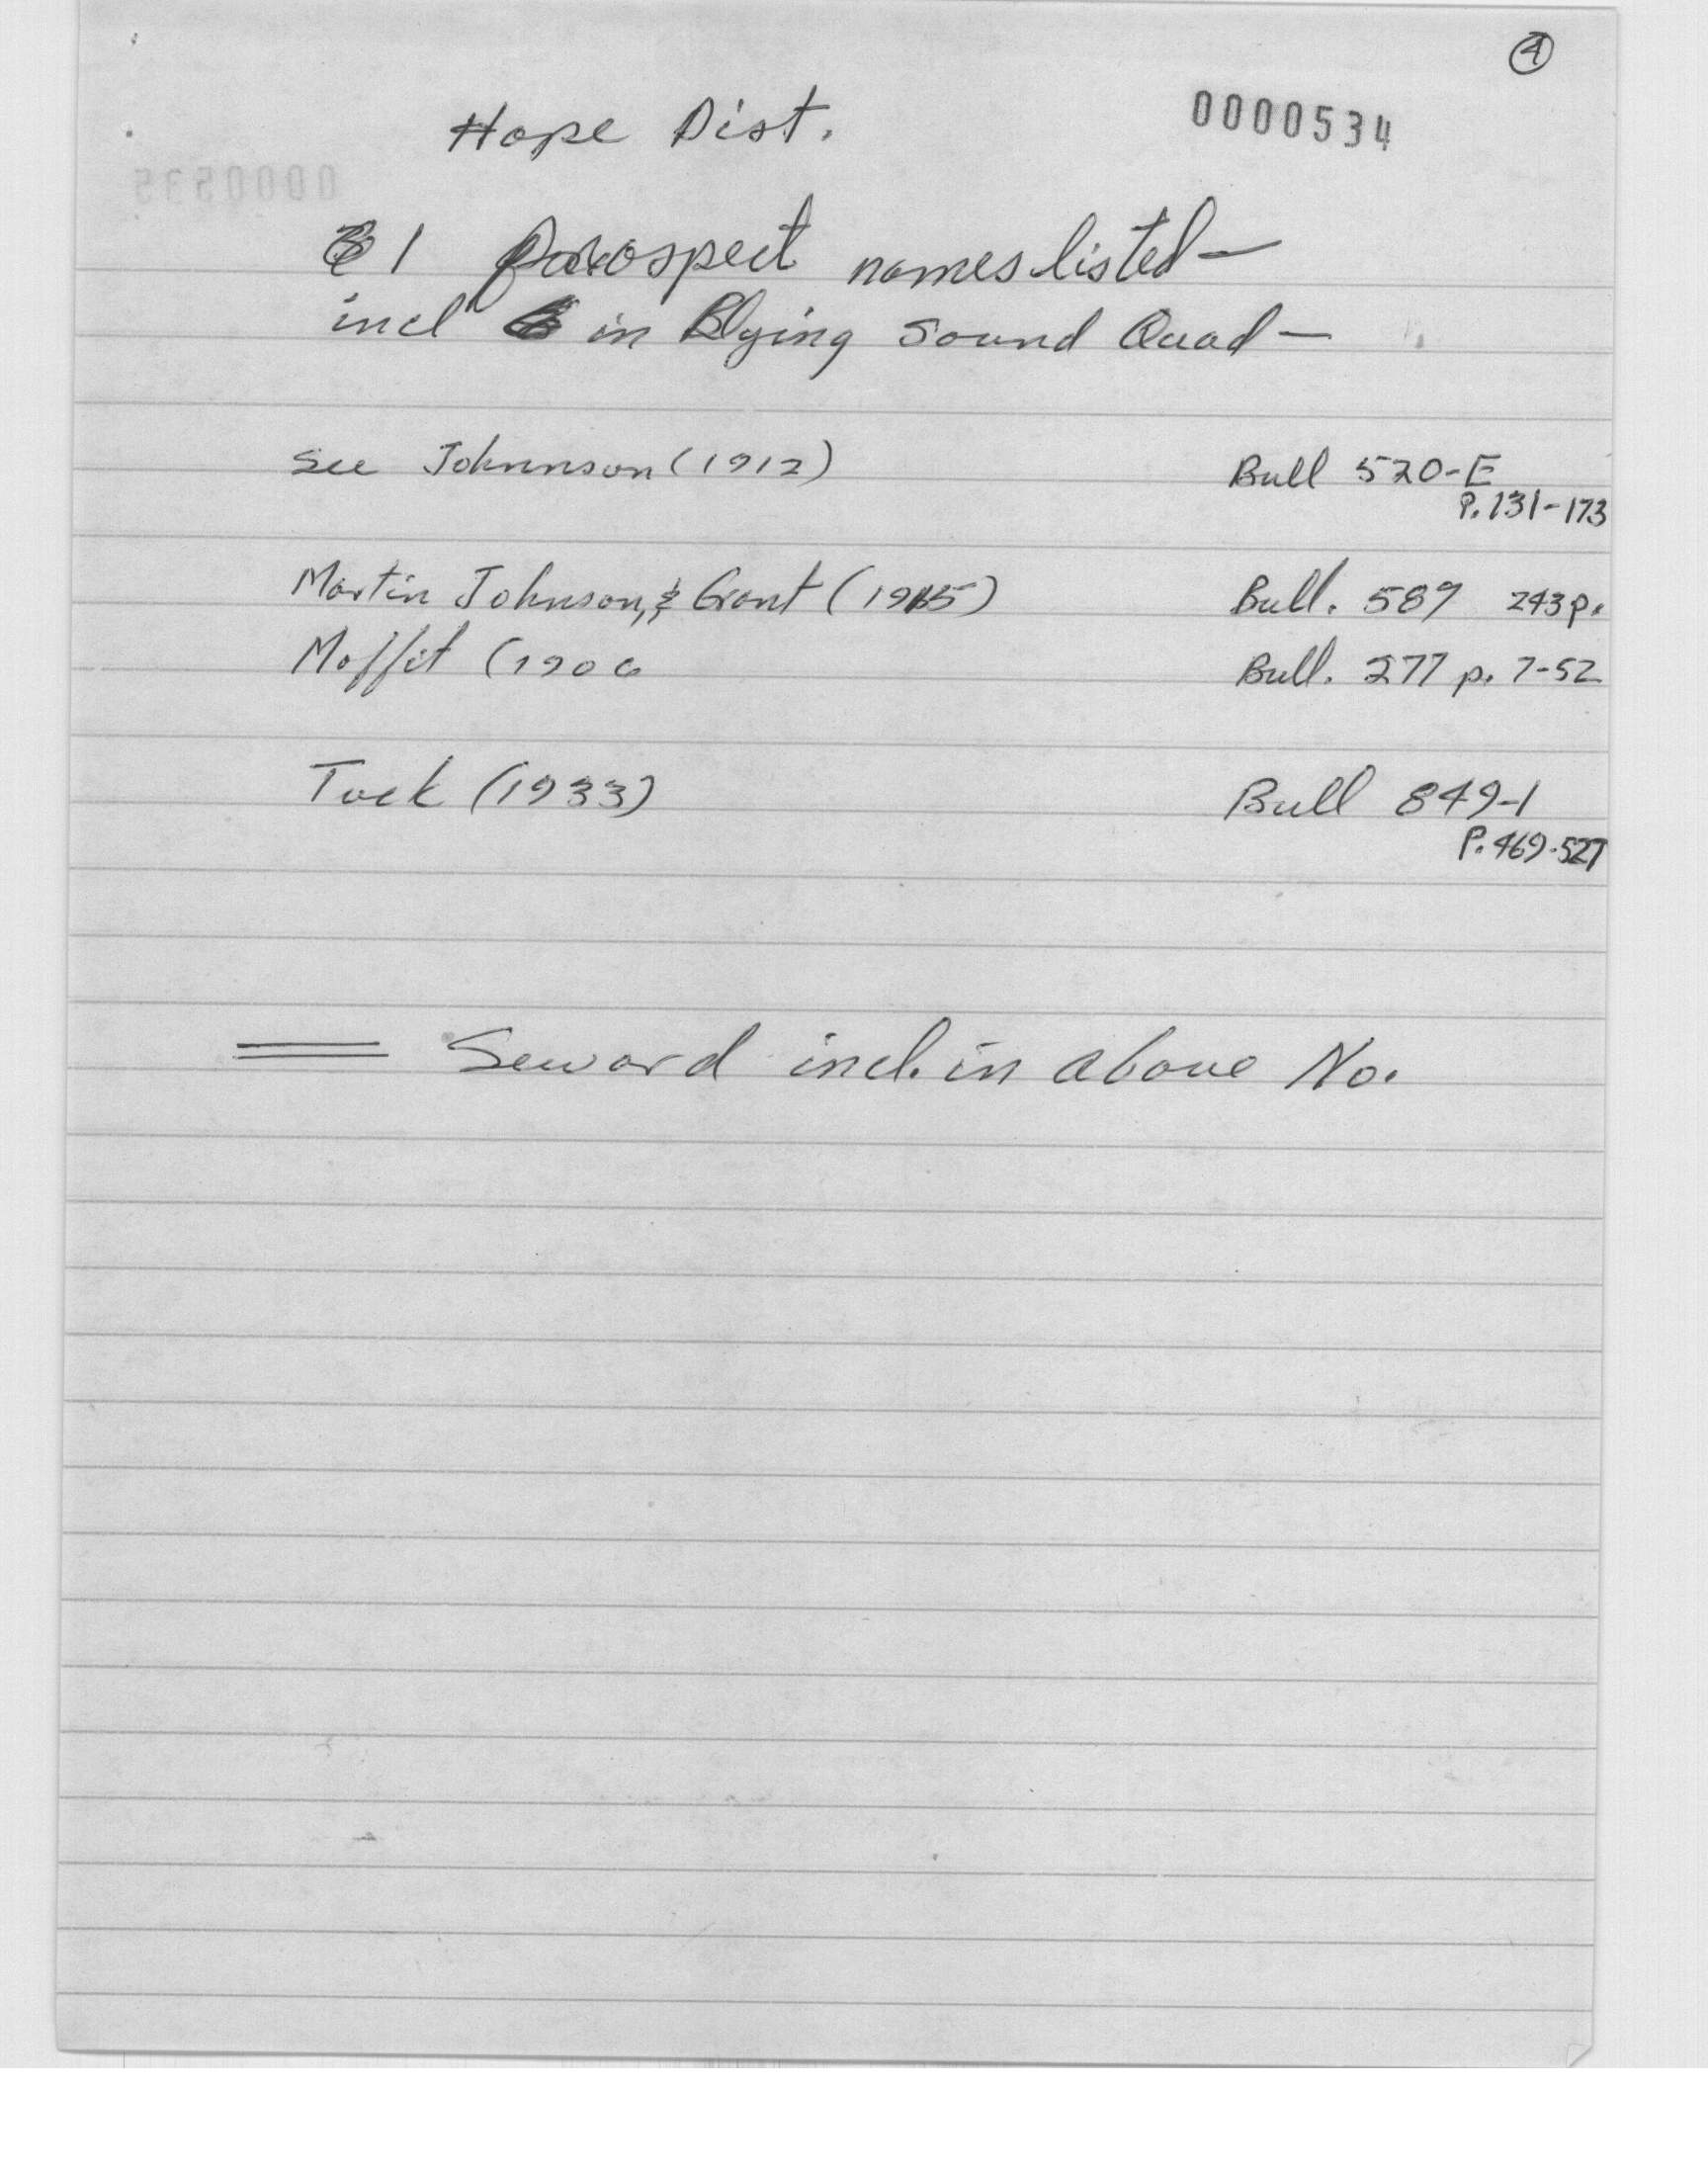 ④
Hope Dist.
0000534
1 Prospect names listed —
incl in Blying Sound Quad —
See Johnnson (1912) Bull 520-E
P. 131-173
Martin Johnson, & Grant (1915) Bull. 587 243 p.
Moffit (1906 Bull. 277 p. 7-52
Tuck (1933) Bull 849-1
P. 469-527
Seward incl. in above No.